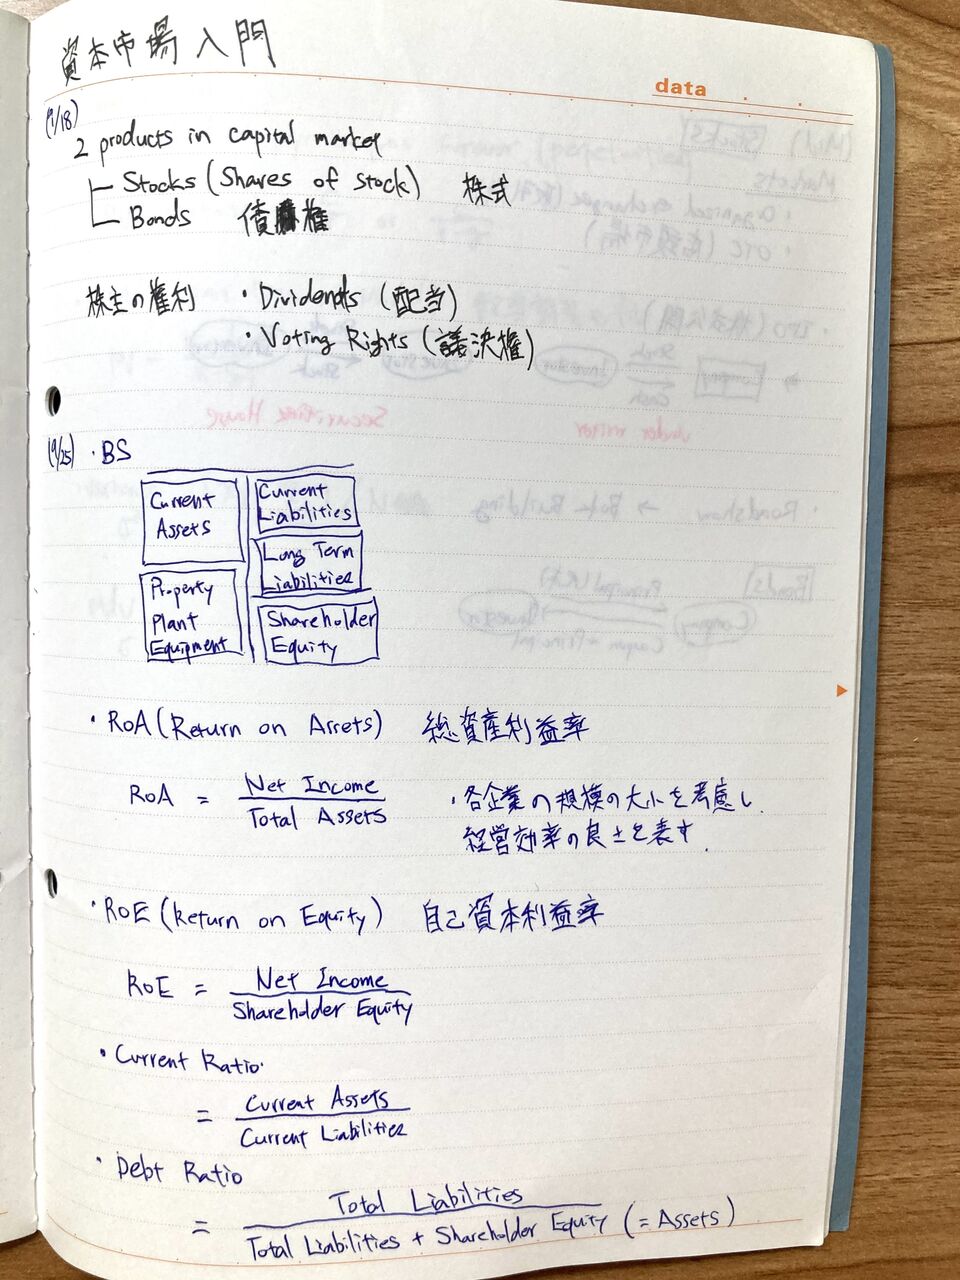 資本市場入門
data
(9/18)
2 products in capital market
Stocks (Shares of stock) 株式
Bonds 債権
株主の権利 ・Dividends (配当)
・Voting Rights (議決権)
(9/25) ・BS
Current Assets
Current Liabilities
Long Term Liabilities
Property Plant Equipment
Shareholder Equity
・RoA (Return on Assets) 総資産利益率
RoA = Net Income / Total Assets
・各企業の規模の大小を考慮し、
経営効率の良さを表す.
・RoE (Return on Equity) 自己資本利益率
RoE = Net Income / Shareholder Equity
・Current Ratio
= Current Assets / Current Liabilities
・Debt Ratio
= Total Liabilities / Total Liabilities + Shareholder Equity (= Assets)